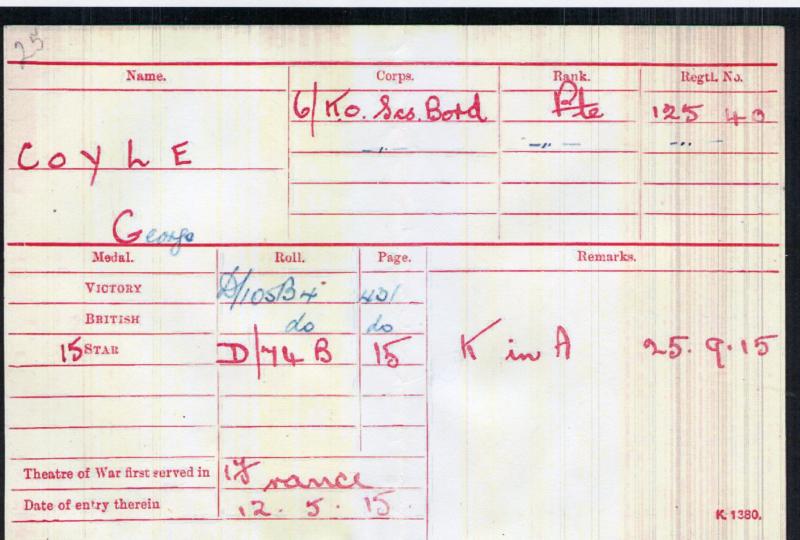 25
Name. Corps. Rank. Regtl. No.
6/K.O. Sco. Bord Pte 125 40
COYLE —"— —"— —"—
George
Medal. Roll. Page. Remarks.
VICTORY D/105B4 401
BRITISH do do
15 STAR D/74 B 15 K in A 25.9.15
Theatre of War first served in 1 France
Date of entry therein 12.5.15
K. 1380.